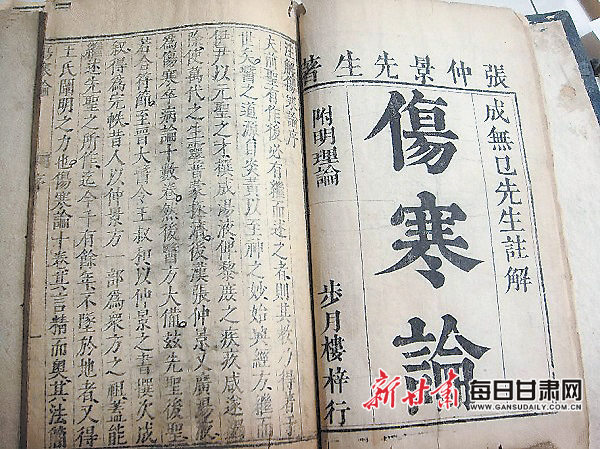 張仲景先生著
成無己先生註解
傷寒論
附明理論
步月樓梓行
註解傷寒論序
夫前聖有作後必有繼而述之者則其教乃得著于
世矣醫之道源自炎黃以至神之妙始興經方繼而
伊尹以元聖之才撰成湯液俾黎庶之疾疢咸遂蠲
除使萬代之生靈普蒙拯濟後漢張仲景又廣湯液
為傷寒卒病論十數卷然後醫方大備茲先聖後聖
若合符節至晉太醫令王叔和以仲景之書撰次成
敘得為完帙昔人以仲景方一部為眾方之祖蓋能
繼述先聖之所作迄今千有餘年不墜於地者又得
王氏闡明之力也傷寒論十卷其言精而奧其法簡
新甘肃 每日甘肃网
WWW.GANSUDAILY.COM.CN